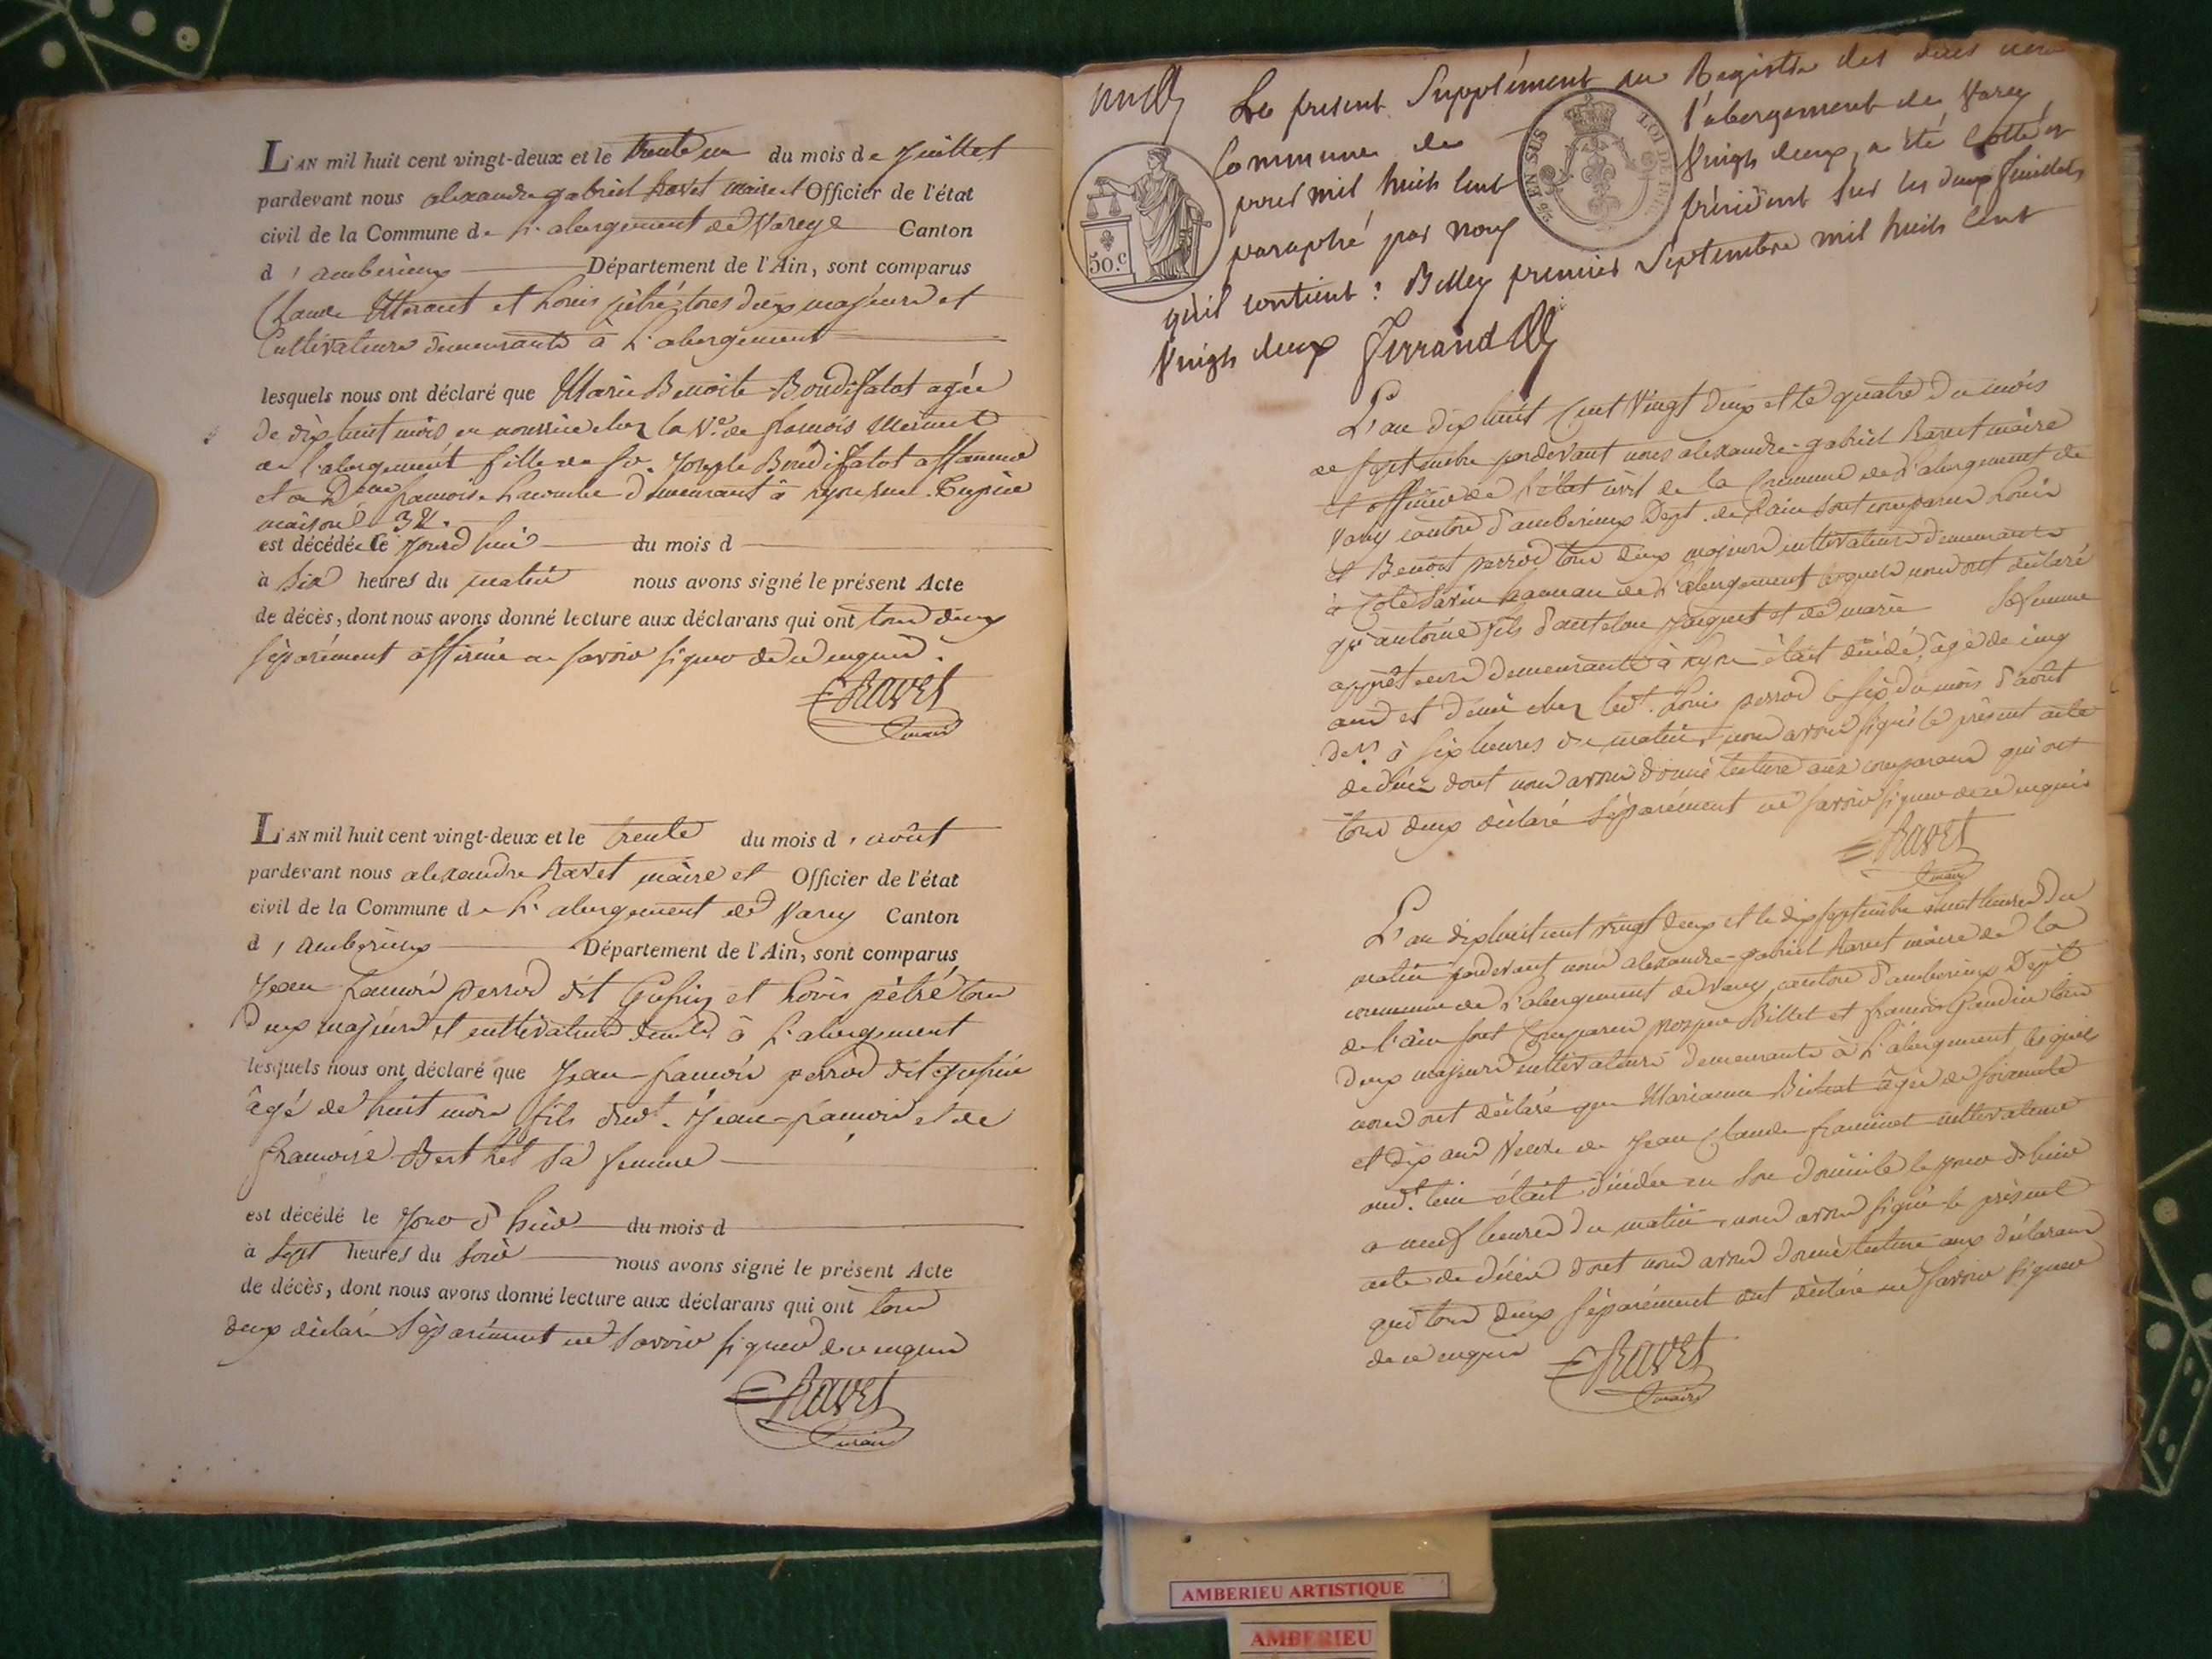 L'AN mil huit cent vingt-deux et le trente un du mois de Juillet
pardevant nous alexandre gabriel Ravet maire et Officier de l'état
civil de la Commune de L'abergement de Varey Canton
d'amberieux Département de l'Ain, sont comparus
Claude Morant et Louis pétré tous deux majeurs et
Cultivateurs demeurants à L'abergement
lesquels nous ont déclaré que Marie Benoite Boudifatot agée
de dix huit mois en nourrice chez la Ve. de françois Mermet
de l'abergement fille de Sr. Joseph Boudifatot
et de Dame françoise Lacombe demeurant à Lyon rue
maison 32.
est décédée le Jourd'hui du mois d
à Six heures du matin nous avons signé le présent Acte
de décès, dont nous avons donné lecture aux déclarans qui ont tous deux
séparément affirmé ne savoir signer de ce requis.
Ravet
maire
L'AN mil huit cent vingt-deux et le trente du mois d'août
pardevant nous alexandre Ravet maire et Officier de l'état
civil de la Commune de L'abergement de Varey Canton
d'amberieux Département de l'Ain, sont comparus
Jean françois perrod dit et Louis pétré tous
Deux majeurs et cultivateurs demts à L'abergement
lesquels nous ont déclaré que Jean-françois perrod dit
âgé de huit mois fils dudt. Jean-françois et de
françoise Berthet Sa femme
est décédé le Jour d'hier du mois d
à Sept heures du soir nous avons signé le présent Acte
de décès, dont nous avons donné lecture aux déclarans qui ont tous
deux déclaré séparément ne savoir signer de ce requis
Ravet
maire
Le présent Supplément au Registre des décès
Commune de l'abergement de Varey
pour mil huit cent Vingt deux, a été Cotté et
paraphé par nous président sur les deux feuillets
qu'il contient : Belley premier Septembre mil huit cent
Vingt deux Ferrand
50.c
EN SUS
LOI DE
L'an dix huit Cent Vingt deux et le quatre du mois
de septembre pardevant nous alexandre-gabriel Ravet maire
et officier de l'état civil de la Commune de L'abergement de
Varey canton d'amberieux Dept. de l'ain sont comparus Louis
et Benoit perrod tous deux majeurs cultivateurs demeurants
à Côte Savin hameau de L'abergement lesquels nous ont déclaré
qu'antoine fils d'antelme Jacquet et de marie Sa femme
demeurants à Lyon était décédé, âgé de cinq
ans et demi chez ledt. Louis perrod le six du mois d'août
der. à six heures du matin, nous avons signé le présent acte
de décès dont nous avons donné lecture aux comparans qui ont
tous deux déclaré séparément ne savoir signer de ce requis
Ravet
maire
L'an dix huit cent vingt deux et le dix septembre à huit heures du
matin pardevant nous alexandre-gabriel Ravet maire de la
commune de L'abergement de Varey, canton d'amberieux Dept.
de l'ain sont Comparus prosper Billet et françois Gaudin tous
Deux majeurs cultivateurs demeurants à L'abergement, lesquels
nous ont déclaré que Marianne Bichat âgée de soixante
et dix ans Veuve de Jean Claude framinet cultivateur
audt. lieu était décédée en son domicile le jour d'hier
à neuf heures du matin, nous avons signé le présent
acte de décès dont nous avons donné lecture aux déclarans
qui tous deux séparément ont déclaré ne savoir signer
de ce requis
Ravet
maire
AMBERIEU ARTISTIQUE
AMBERIEU